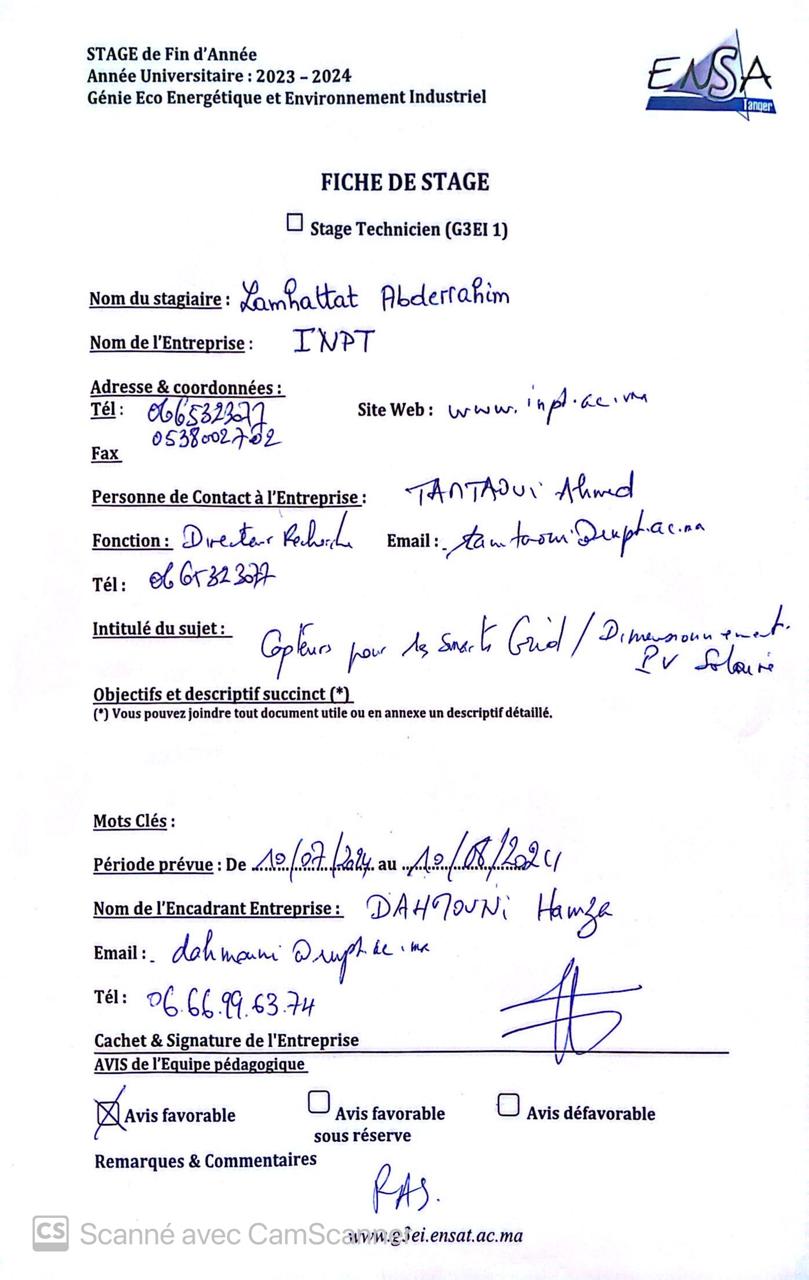 STAGE de Fin d'Année
Année Universitaire : 2023 – 2024
Génie Eco Energétique et Environnement Industriel
ENSA
Tanger
FICHE DE STAGE
☐ Stage Technicien (G3EI 1)
Nom du stagiaire : Lamhattat Abderrahim
Nom de l'Entreprise : INPT
Adresse & coordonnées :
Tél : 0665323077 Site Web : www.inpt.ac.ma
0538002702
Fax
Personne de Contact à l'Entreprise : TAMTAOUi Ahmed
Fonction : Directeur Recherche Email : tamtaoui@inpt.ac.ma
Tél : 0665323077
Intitulé du sujet : Capteurs pour les Smarts Grid / Dimensionnement
PV Solaire
Objectifs et descriptif succinct (*)
(*) Vous pouvez joindre tout document utile ou en annexe un descriptif détaillé.
Mots Clés :
Période prévue : De 10/07/2024 au 10/08/2024
Nom de l'Encadrant Entreprise : DAHMOUNi Hamza
Email : dahmouni@inpt.ac.ma
Tél : 06.66.99.63.74
Cachet & Signature de l'Entreprise
AVIS de l'Equipe pédagogique
☒ Avis favorable ☐ Avis favorable ☐ Avis défavorable
sous réserve
Remarques & Commentaires
RAS.
CS Scanné avec CamScanner
www.g3ei.ensat.ac.ma